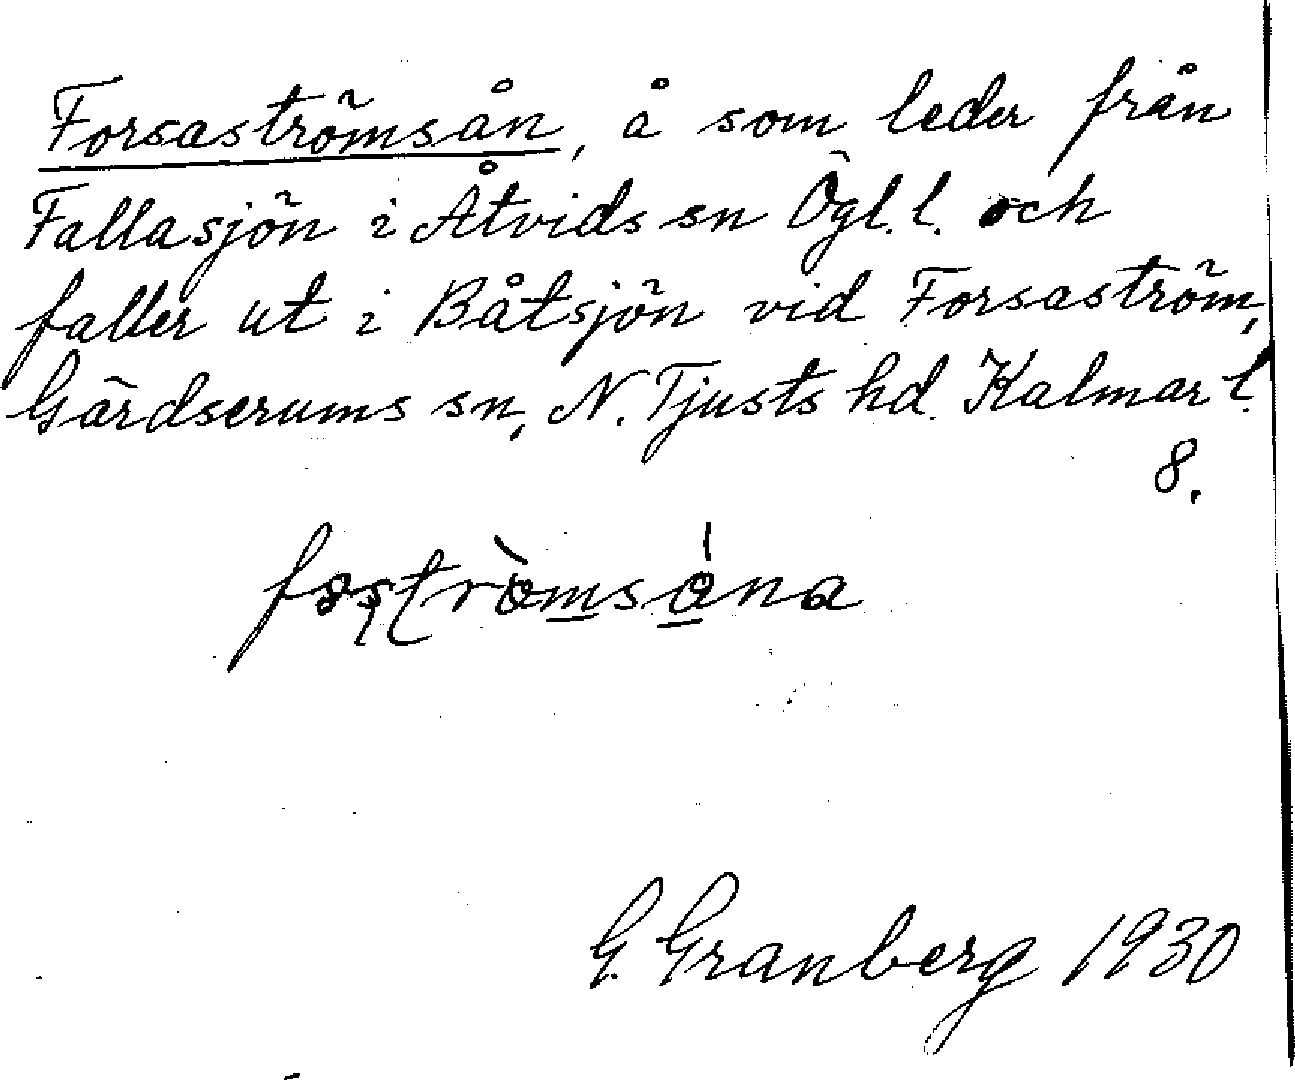 Forsaströmsån, å som leder från
Fallasjön i Åtvids sn Ögl. l. och
faller ut i Båtsjön vid Forsaström,
Gärdserums sn, N. Tjusts hd. Kalmar l.
8.
G. Granberg 1930